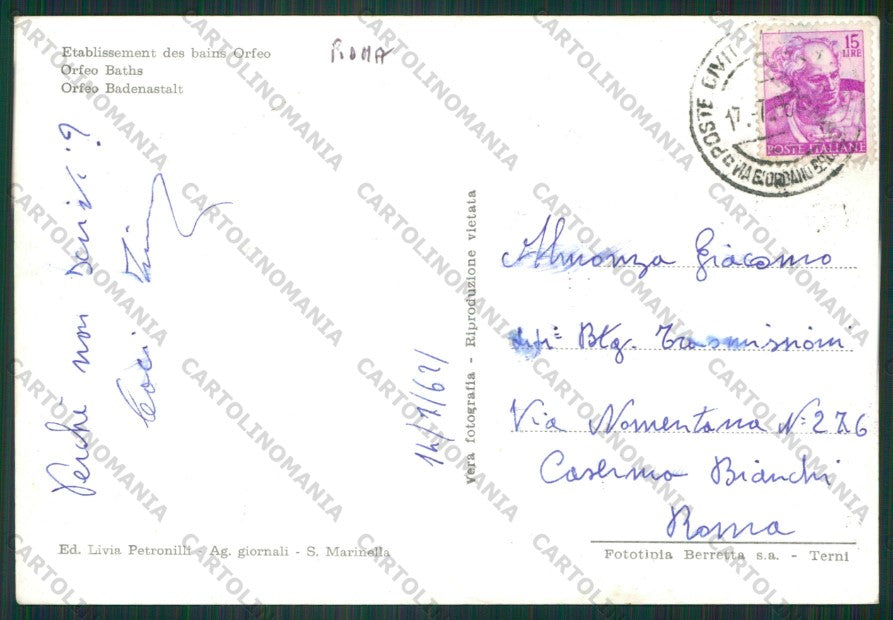 Etablissement des bains Orfeo
Orfeo Baths
Orfeo Badenastalt
ROMA
15
LIRE
POSTE ITALIANE
POSTE CIVIT
17.
VIA GIORDANO
Perchè non scrivi?
14/7/621
Vera fotografia - Riproduzione vietata
Almonza Giacomo
Btg. Trasmissioni
Via Nomentana N=276
Caserma Bianchi
Roma
Ed. Livia Petronilli - Ag. giornali - S. Marinella
Fototipia Berretta s.a. - Terni
CARTOLINOMANIA